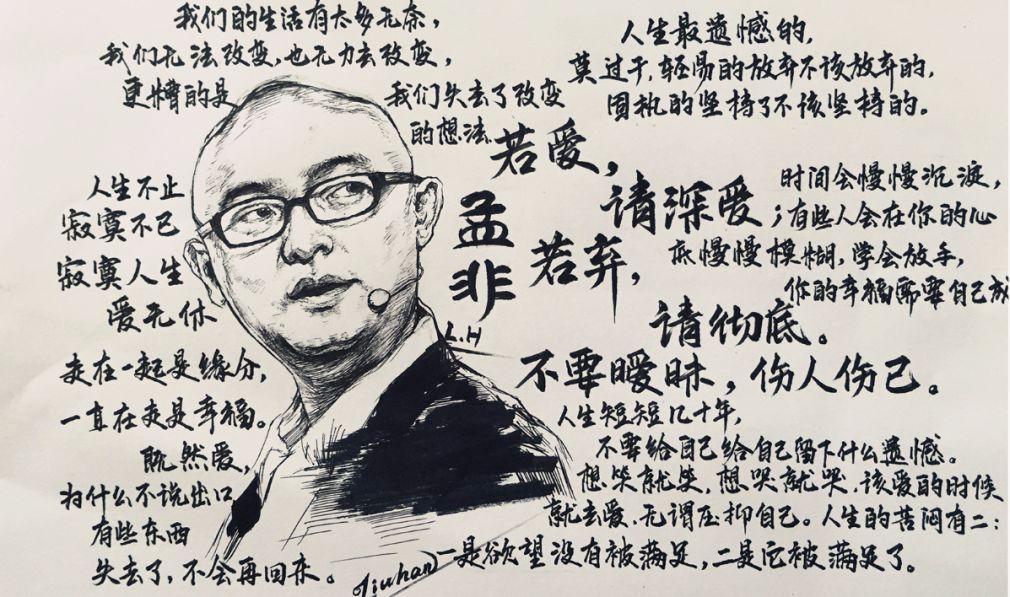 我们的生活有太多无奈，
我们无法改变，也无力去改变，
更糟的是
我们失去了改变
的想法
人生最遗憾的，
莫过于，轻易的放弃不该放弃的，
固执的坚持了不该坚持的。
若爱，
请深爱
；
孟非
若弃，
请彻底。
不要暧昧，伤人伤己。
时间会慢慢沉淀，
有些人会在你的心
底慢慢模糊，学会放手，
你的幸福需要自己成
人生不止
寂寞不已
寂寞人生
爱无休
走在一起是缘分，
一直在走是幸福。
既然爱，
为什么不说出口
有些东西
失去了，不会再回来。
L.H
人生短短几十年，
不要给自己给自己留下什么遗憾。
想笑就笑，想哭就哭，该爱的时候
就去爱，无谓压抑自己。人生的苦闷有二：
一是欲望没有被满足，二是它被满足了。